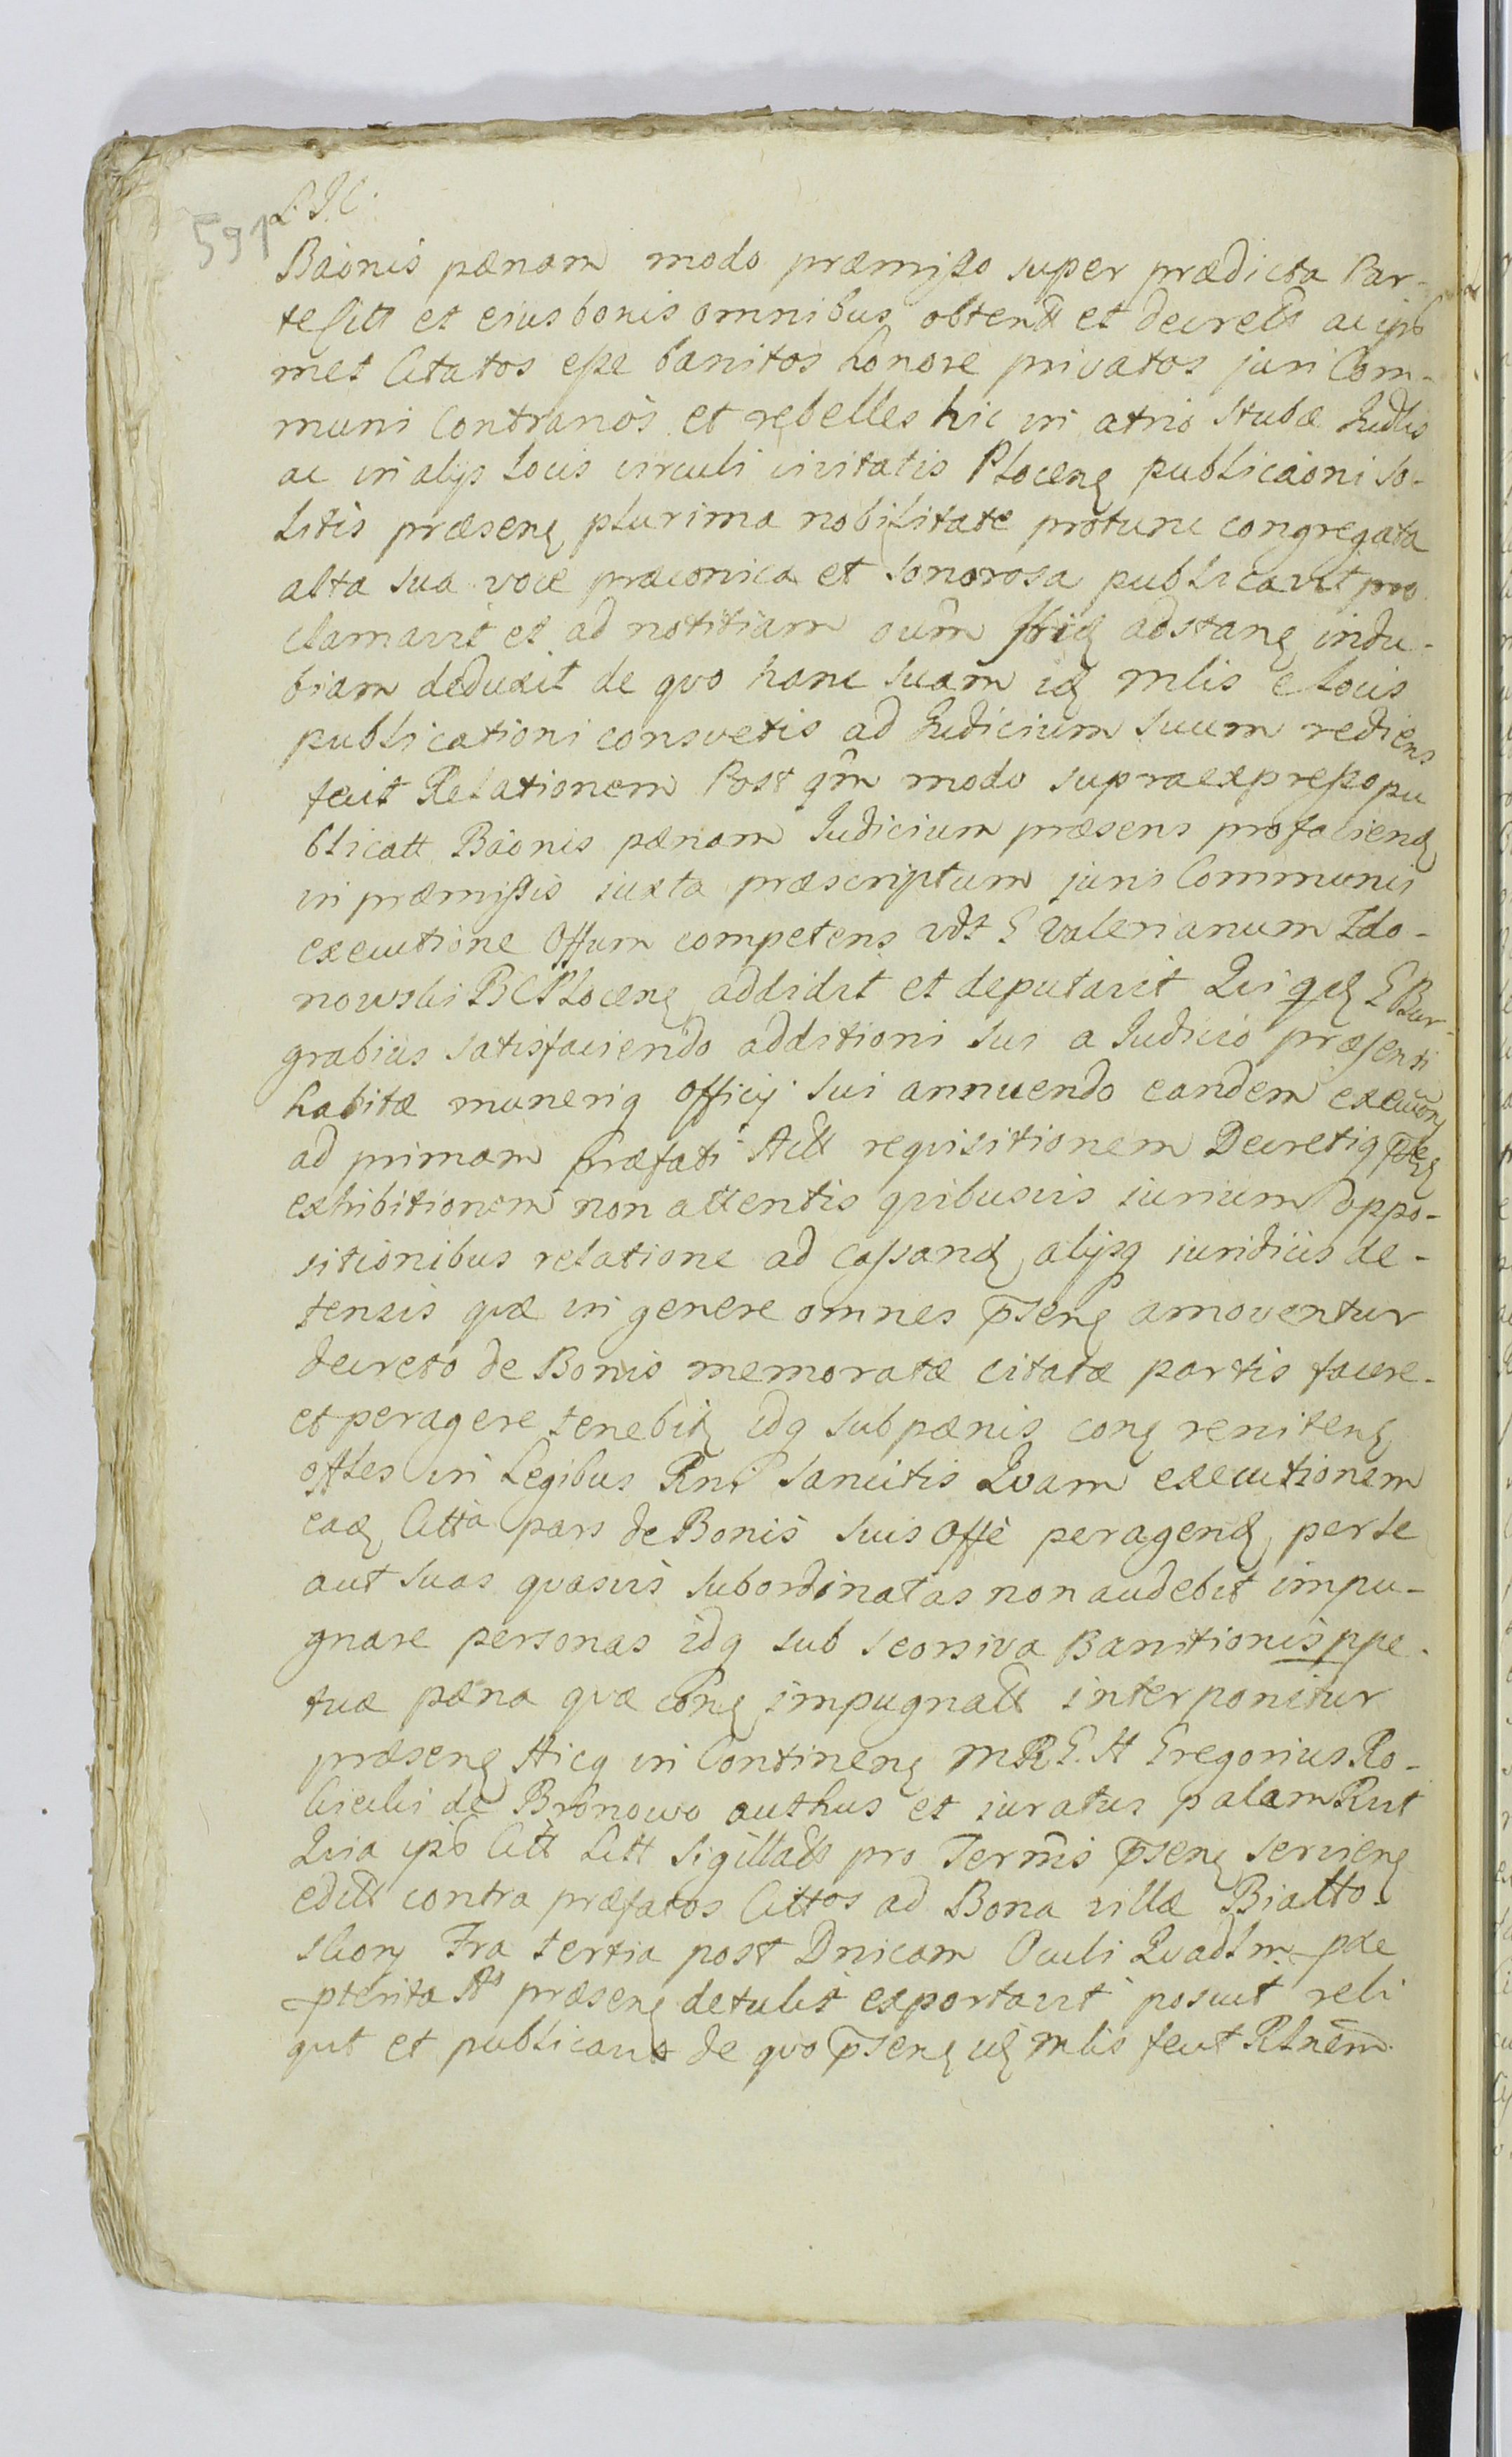 591
Bãonis pænam modo præmisso super prædicta Par-
te Citt et eius bonis omnibus obtentt et decrett ac ips
met Citatos esse banitos honore privatos juri Com-
muni Contrarios et rebelles hic in atrio stubæ Judlis
ac in alijs locis circuli civitatis Ploceng publicãoni so-
litis præseng plurima nobilitate protunc congregata
alta sua voce præconica et sonorosa publicavit pro
clamavit et ad notitiam oum ibid adstang indu-
biam deduxit de qvo hanc suam id mlis e locis
publicationi consvetis ad Judicium suum rediens
fecit Relationem Post qm modo supraexpresso pu
blicatt Bãonis pænam Judicium præsens pro faciend
in præmissis iuxta præscriptum juris Communis
executione Offum competens vdt G Valerianum Zdo-
nowski BCPloceng addidit et deputavit Qui qd G Bur-
grabius satisfaciendo additioni sui a Judicio præsenti
habitæ munerig officij sui annuendo eandem execuõnẽ
ad primam præfati Att requisitionem Decretiq
exhibitionem non attentis qvibusvis iurium oppo-
sitionibus relatione ad cassand, alijsq iuridicis de-
fensis qvæ in genere omnes pseng amoventur
decreto de Bonis memoratæ citatæ partis facere-
et peragere tenebitr idq sub pænis cong reniteng
offles in Legibus Rni sancitis Qvam executionem
ead Citta pars de Bonis suis offe peragend, per se
aut suas qvasvis subordinatas non audebit impu-
gnare personas idq sub seorsiva Banitionis ppe-
tuæ pæna qvæ cong impugnatt interponitur
præseng Hicq in Contineng M R G. H Gregorius Ro-
kicki de Bronowo authus et iuratus palam Rcit
Qvia ips Citt Litt sigillatt pro Termis pseng servieng
editt contra præfatos Cittos ad Bona villæ Biatto-
skory Fra tertia post Dnicam Oculi Qvadlm præ
pterita As præseng detulit exportavit posuit reli
qvit et publicavit de qvo pseng id mlis fecit Rlnem